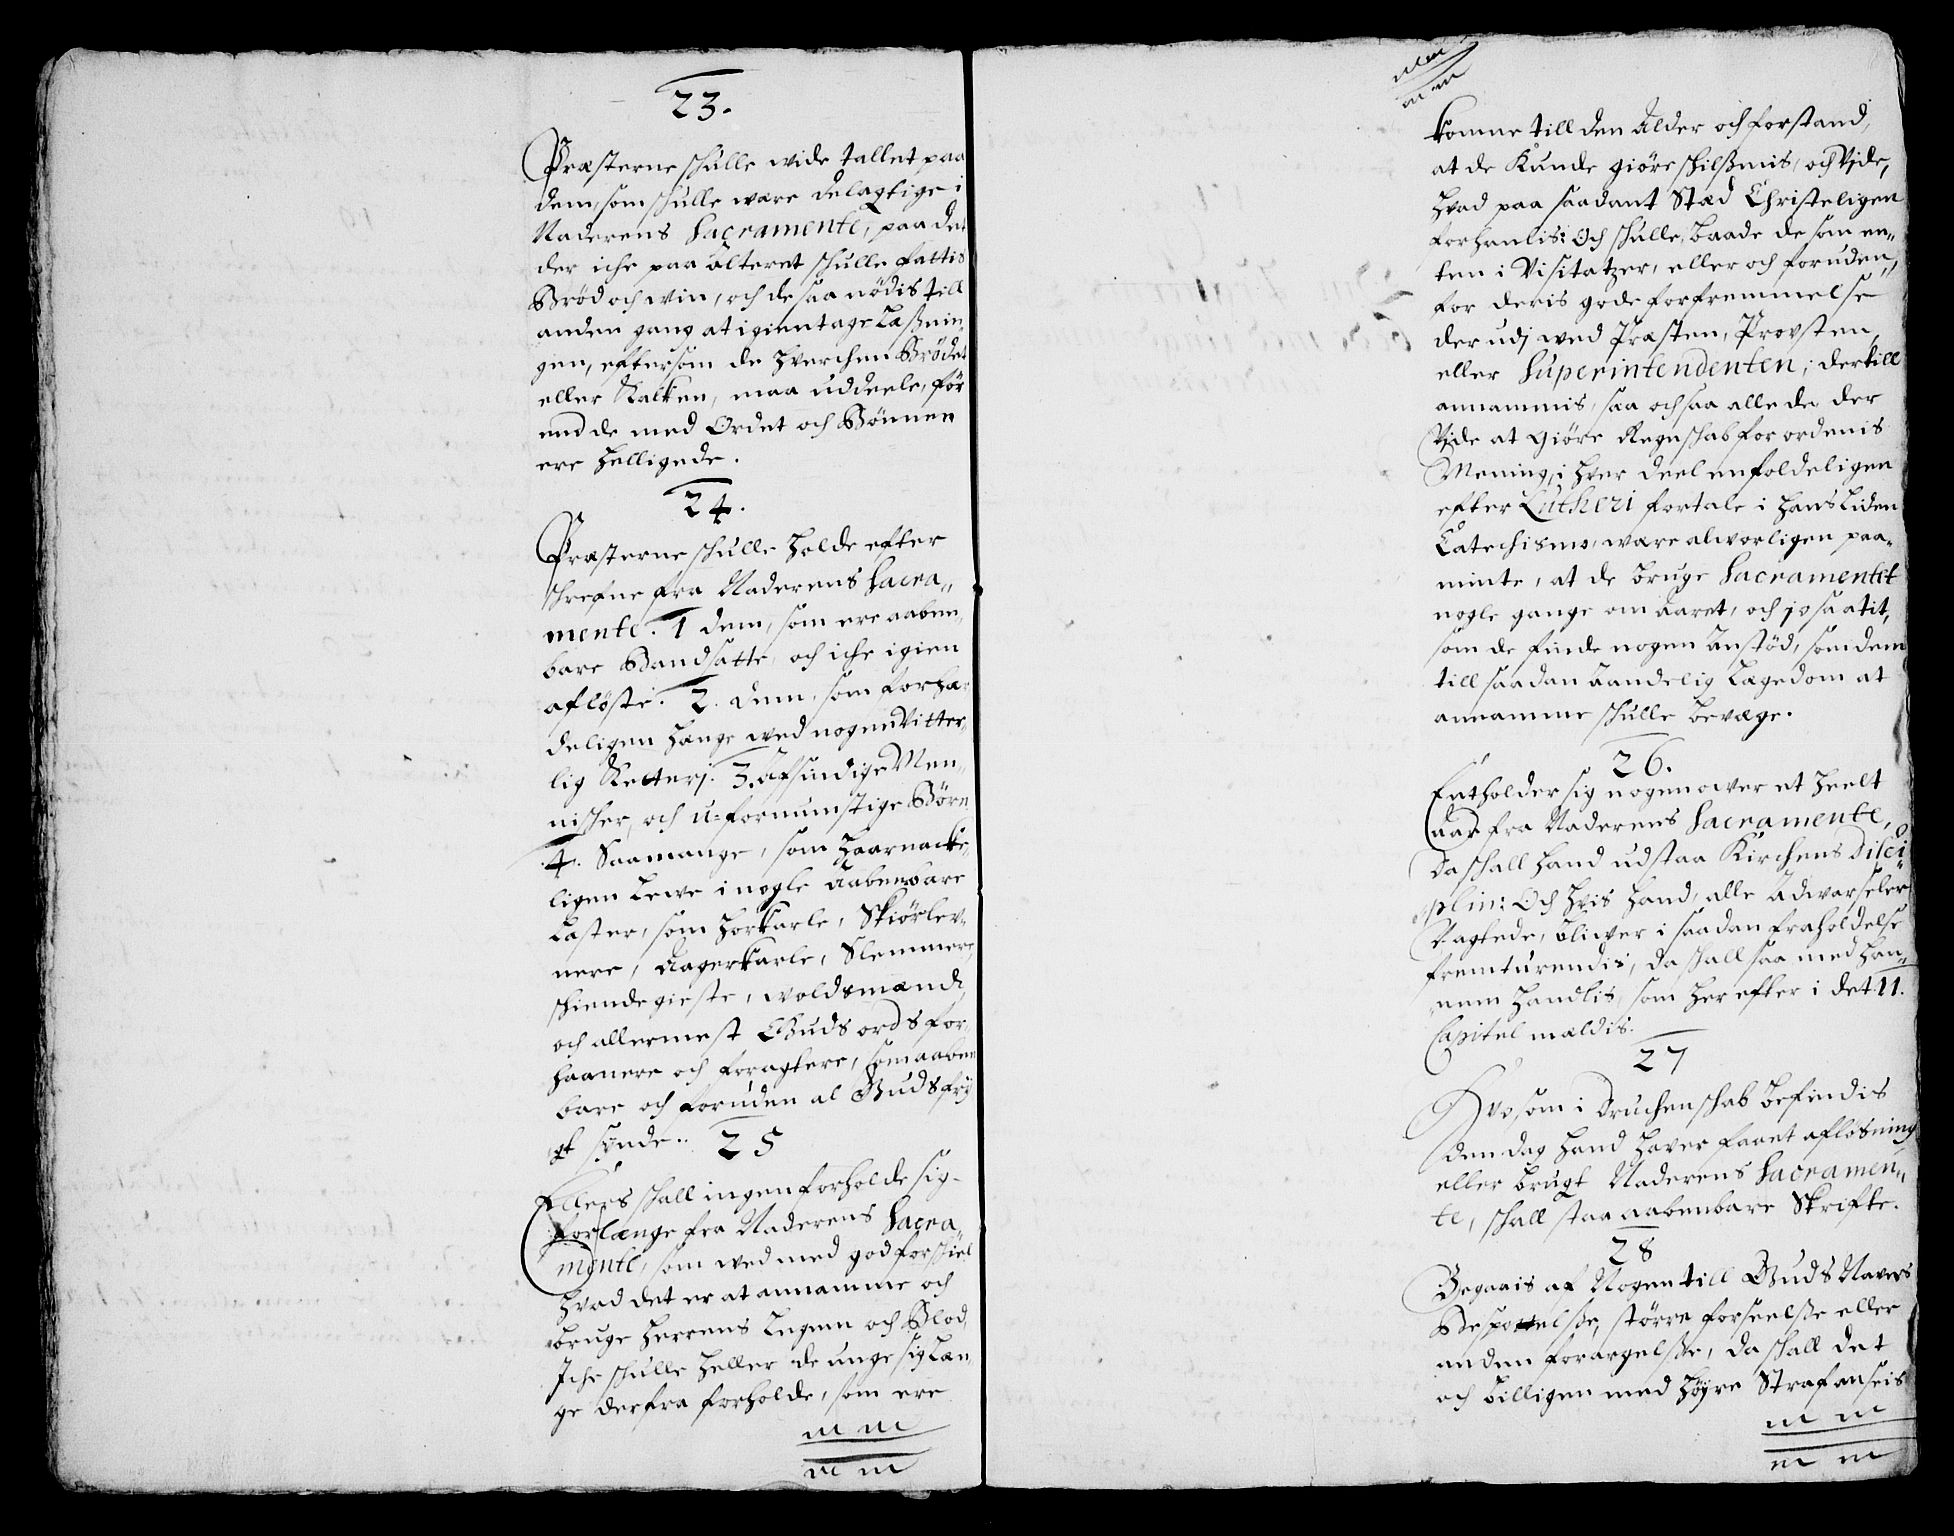 23.
Præsterne schulle wide tallet paa
dem, som schulle were delagtige i
Naderens Sacramente, paa det
der iche paa alteret schulle fattis
Brød och win, och de saa nødis till
anden gang at igientage Læßnin„
gen, eftersom de hverchen Brødet
eller Kalken, maa uddeele, før
end de med Ordet och Bønnen
ere Helligede.
24.
Præsterne schulle holde efter
schrefne fra Naderens Sacra„
mente. 1 dem, som ere aaben„
bare Bandsatte, och iche igien
afløste. 2. dem, som forhær
deligen hænge wed nogen Vitter„
lig Ketterj. 3. Afsindige Men„
nischer, och u-fornumstige Børn
4. Saamange, som haarnacke„
ligen Leve i nogle Aabenbare
Laster, som Horkarle, Skiørlev„
nere, Aagerkarle, Slemmere,
schiendegieste, woldsmænd
och allermest Guds ords for„
haanere och foragtere, som aaben
bare och foruden al Guds frÿ
gt synde. 25
Ellers schall ingen forholde sig
forlænge fra Naderens Sacra„
mente, som wed med god forschiel
hvad det er at annamme och
bruge Herrens Legem och Blod,
Iche schulle heller de unge sig læn„
ge derfra forholde, som ere
komme till den Alder och forstand,
at de Kunde giøre schilßmis, och Vide,
hvad paa saadant Stæd Christeligen
forhanlis: Och schulle, baade de som en„
ten i Visitatzer, eller och foruden,
for deris gode forfremmelse
der udj wed Præsten, Provsten,
eller Superintendenten, dertill
annammis, saa och saa alle de der
Vide at giøre Regnschab for ordenis
Mening, i hver deel enfoldeligen
efter Lutheri fortale i hans liden
Catechismo, were alvorligen paa„
minte, at de bruge Sacramentet
nogle gange om Aaret, och jo saa tit,
som de finde nogen Anstød, som dem
till saadan Aandelig Lægedom at
annamme schulle bevæge.
26.
Entholder sig nogen over et heelt
Aar fra Naderens Sacramente,
da schall hand udstaa Kirchens disci„
plin: Och hvis hand, alle Advarseler
Uagtede, bliwer i saadan fraholdelse
fremturendis, da schall saa med han„
nem handlis, som her efter i det 11.
Capitel meldis.
27
Hvo som i Druchenschab befindis
den dag hand haver faaet afløsning
eller brugt Naderens Sacramen„
te, schall staa aabenbare Skrifte.
28
Begaais af Nogen till Guds Navns
Bespottelße, større forseelße eller
anden forargelße, da schall det
och billigen med høyre Straf anseis